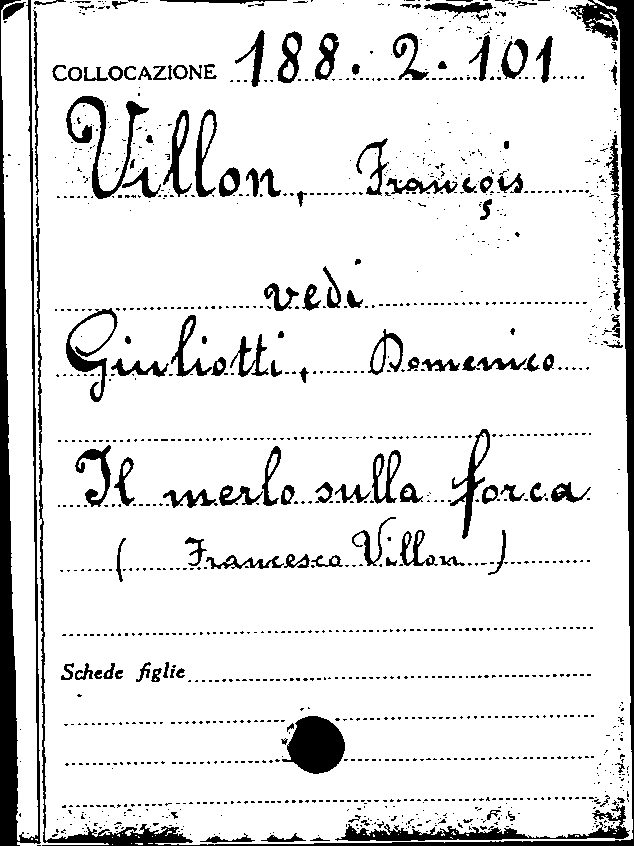 COLLOCAZIONE 188. 2. 101
Villon, François
vedi
Giuliotti, Domenico
Il merlo sulla forca
( Francesco Villon )
Schede figlie